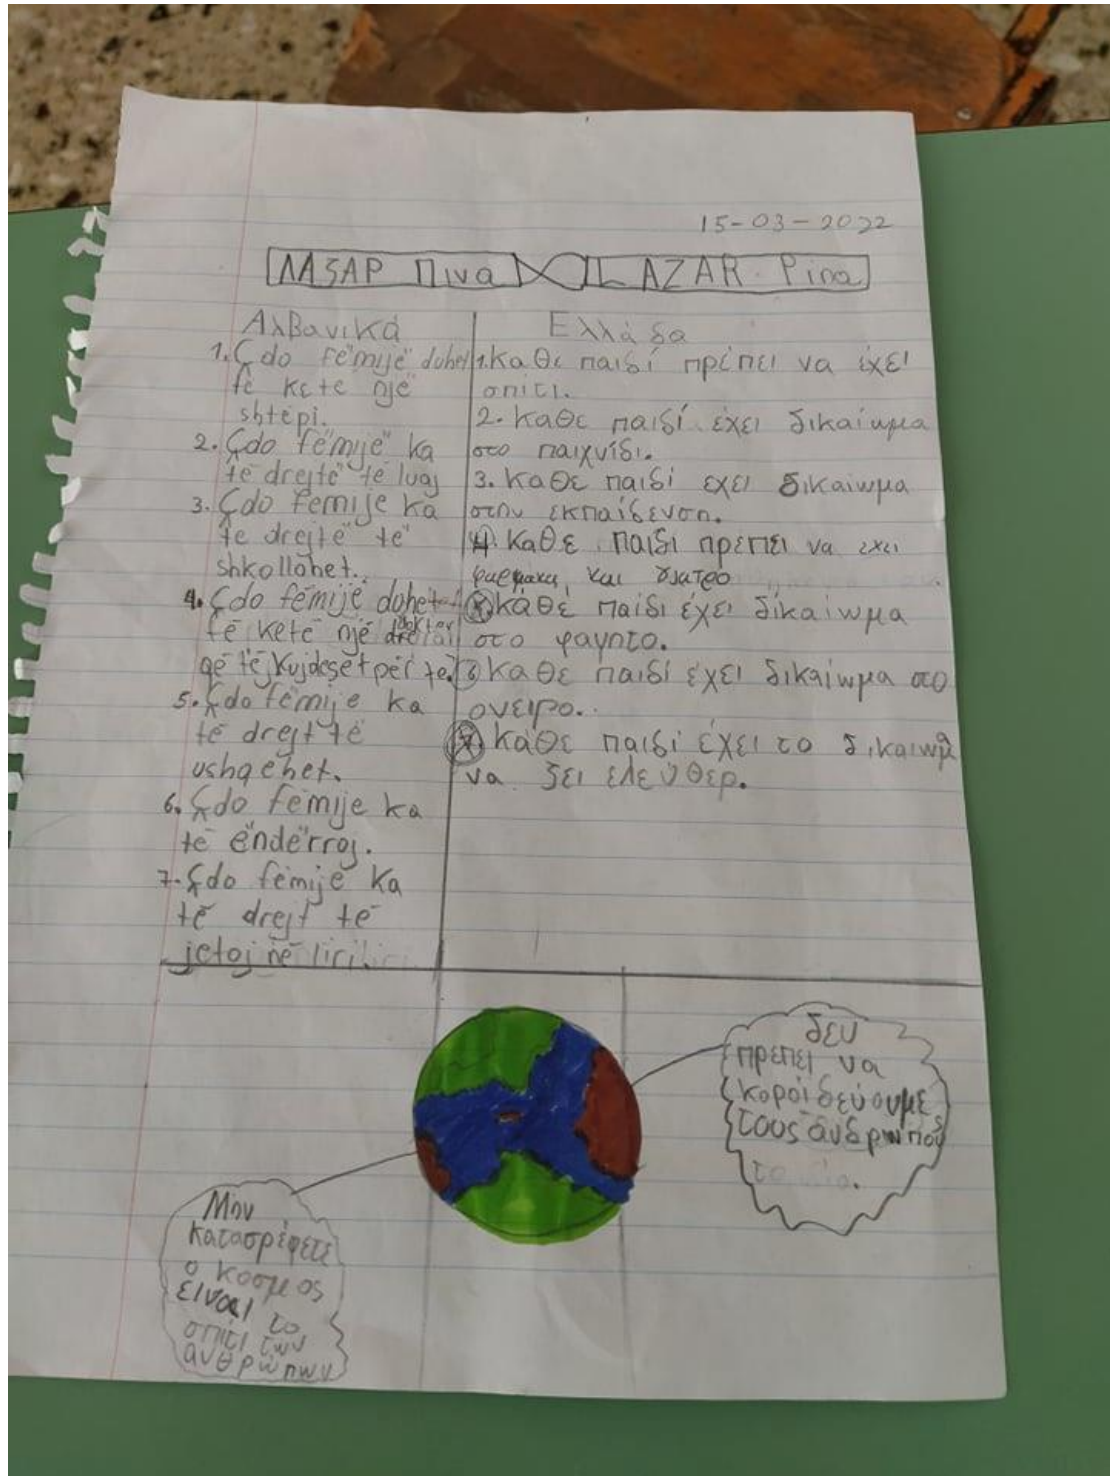 15-03-2022
ΛΑΖΑΡ Πινα LAZAR Pina
Αλβανικά
1. Çdo fëmijë duhet
të kete një
shtëpi.
2. Çdo fëmijë ka
të drejtë të luaj
3. Çdo femije ka
te drejtë të
shkollohet.
4. Çdo fëmijë duhet
të ketë një doktor
që të kujdeset për te.
5. Çdo fëmije ka
të drejt të
ushqehet.
6. Çdo fëmije ka
të ënderroj.
7. Çdo fëmijë ka
të drejt të
jetoj në liri.
Ελλάδα
1. καθε παιδί πρέπει να έχει
σπίτι.
2. καθε παιδί έχει δικαίωμα
στο παιχνίδι.
3. καθε παιδί εχει δικαίωμα
στην εκπαίδευση.
4. καθε παιδι πρεπει να εχει
φαρμακα και γιατρο
κάθε παιδι έχει δικαίωμα
στο φαγητο.
6 καθε παιδί έχει δικαίωμα στο
ονειρο.
7 κάθε παιδί έχει το δικαιωμα
να ζει ελεύθερ.
δεν
πρεπει να
κοροιδεύουμε
τους ανδρωπους
Μην
κατασρέφετε
ο κοσμος
ειναι το
σπίτι των
ανθρώπων